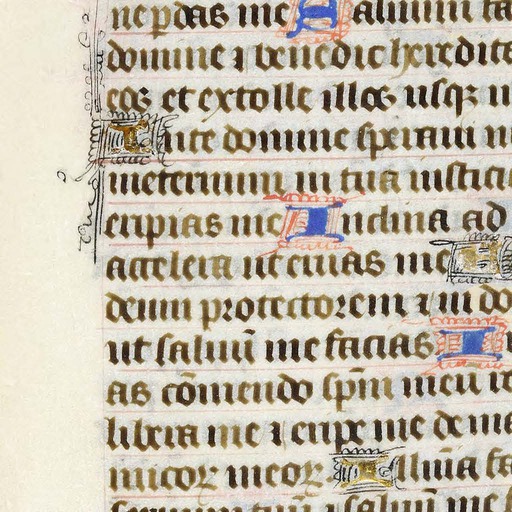 ne p̄das me Saluum fa
domine ⁊ benedic heredita
eoꝫ et extolle illos usqꝫ
In te domine speraui
in eternum in tua iusticia
eripias me Inclina ad
accelera ut eruias me
deum protectorem ⁊ in do
ut saluū me facias
as cōmendo sp̄m meū
libera me ⁊ eripe me de
micoꝝ meoꝝ Illumīa fa
tuū ⁊ saluū me